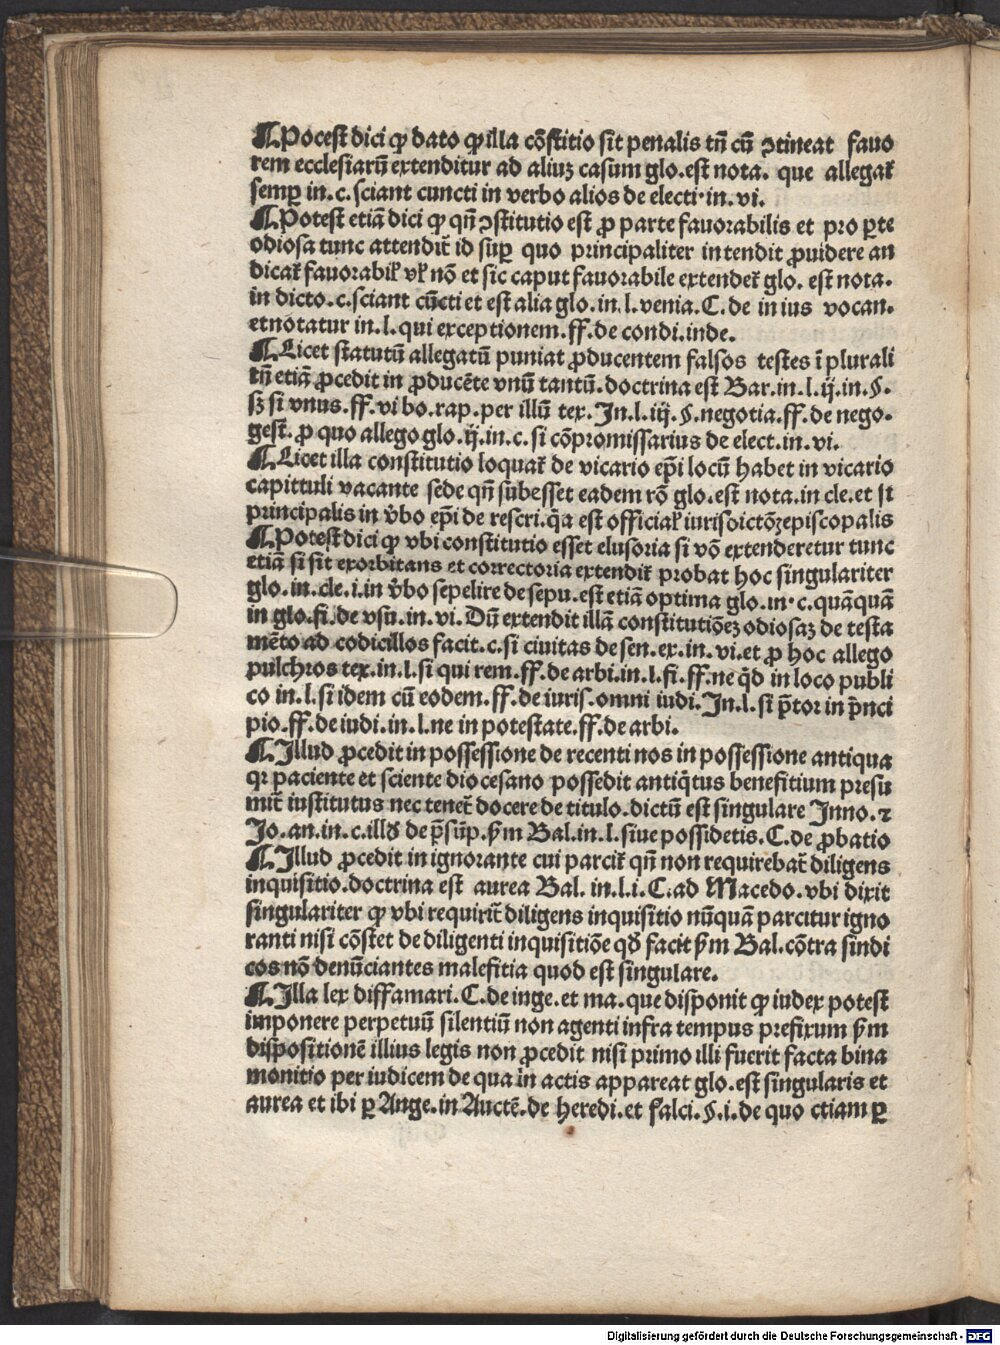 ¶ Pocest dici ꝙ dato ꝙ illa cõstitio sit penalis tñ cũ ꝯtineat fauo
rem ecclesiarũ extenditur ad aliuꝫ casum glo. est nota. que allegat̃
semꝑ in. c. sciant cuncti in verbo alios de electi. in. vi.
¶ Potest etiã dici ꝙ qñ ꝯstitutio est ꝓ parte fauorabilis et pro ꝑte
odiosa tunc attendit̃ id suꝑ quo principaliter intendit ꝓuidere an
dicat̃ fauorabil̃ vl̃ nõ et sic caput fauorabile extendet̃ glo. est nota.
in dicto. c. sciant cũcti et est alia glo. in. l. venia. C. de in ius vocan.
et notatur in. l. qui exceptionem. ff. de condi. inde.
¶ Licet statutũ allegatũ puniat ꝓducentem falsos testes ĩ plurali
tñ etiã ꝓcedit in ꝓducẽte vnũ tantũ. doctrina est Bar. in. l. ij. in. §.
sꝫ si vnus. ff. vi bo. rap. per illũ tex. In. l. iij. §. negotia. ff. de nego.
gest. ꝓ quo allego glo. ij. in. c. si cõpromissarius de elect. in. vi.
¶ Licet illa constitutio loquat̃ de vicario ep̃i locũ habet in vicario
capittuli vacante sede qñ subesset eadem rõ glo. est nota. in cle. et si
principalis in v̉bo ep̃i de rescri. q̃a est official̃ iurisdictõꝫ episcopalis
¶ Potest dici ꝙ vbi constitutio esset elusoria si võ extenderetur tunc
etiã si sit exorbitans et correctoria extendit̃ probat hoc singulariter
glo. in. cle. i. in v̉bo sepelire de sepu. est etiã optima glo. in. c. quãquã
in glo. fi. de vsu. in. vi. Dũ extendit illã constitutiõeꝫ odiosaꝫ de testa
mẽto ad codicillos facit. c. si ciuitas de sen. ex. in. vi. et ꝓ hoc allego
pulchros tex. in. l. si qui rem. ff. de arbi. in. l. fi. ff. ne q̃d in loco publi
co in. l. si idem cũ eodem. ff. de iuris. omni iudi. In. l. si p̃tor in p̃nci
pio. ff. de iudi. in. l. ne in potestate. ff. de arbi.
¶ Illud ꝓcedit in possessione de recenti nos in possessione antiqua
qꝛ paciente et sciente diocesano possedit antiq̃tus benefitium presu
mit̃ institutus nec tenet̃ docere de titulo. dictũ est singulare Inno. ⁊
Jo. an. in. c. illđ de p̃sũp. ẜm Bal. in. l. siue possidetis. C. de ꝓbatio
¶ Illud ꝓcedit in ignorante cui parcit̃ qñ non requirebat̃ diligens
inquisitio. doctrina est aurea Bal. in. l. i. C. ad Macedo. vbi dixit
singulariter ꝙ vbi requirit̃ diligens inquisitio nũquã parcitur igno
ranti nisi cõstet de diligenti inquisitiõe qđ facit ẜm Bal. cõtra sindi
cos nõ denũciantes malefitia quod est singulare.
¶ Illa lex diffamari. C. de inge. et ma. que disponit ꝙ iudex potest
imponere perpetuũ silentiũ non agenti infra tempus prefixum ẜm
dispositionẽ illius legis non ꝓcedit nisi primo illi fuerit facta bina
monitio per iudicem de qua in actis appareat glo. est singularis et
aurea et ibi ꝑ Ange. in Auctẽ. de heredi. et falci. §. i. de quo ctiam ꝑ
Digitalisierung gefördert durch die Deutsche Forschungsgemeinschaft - DFG